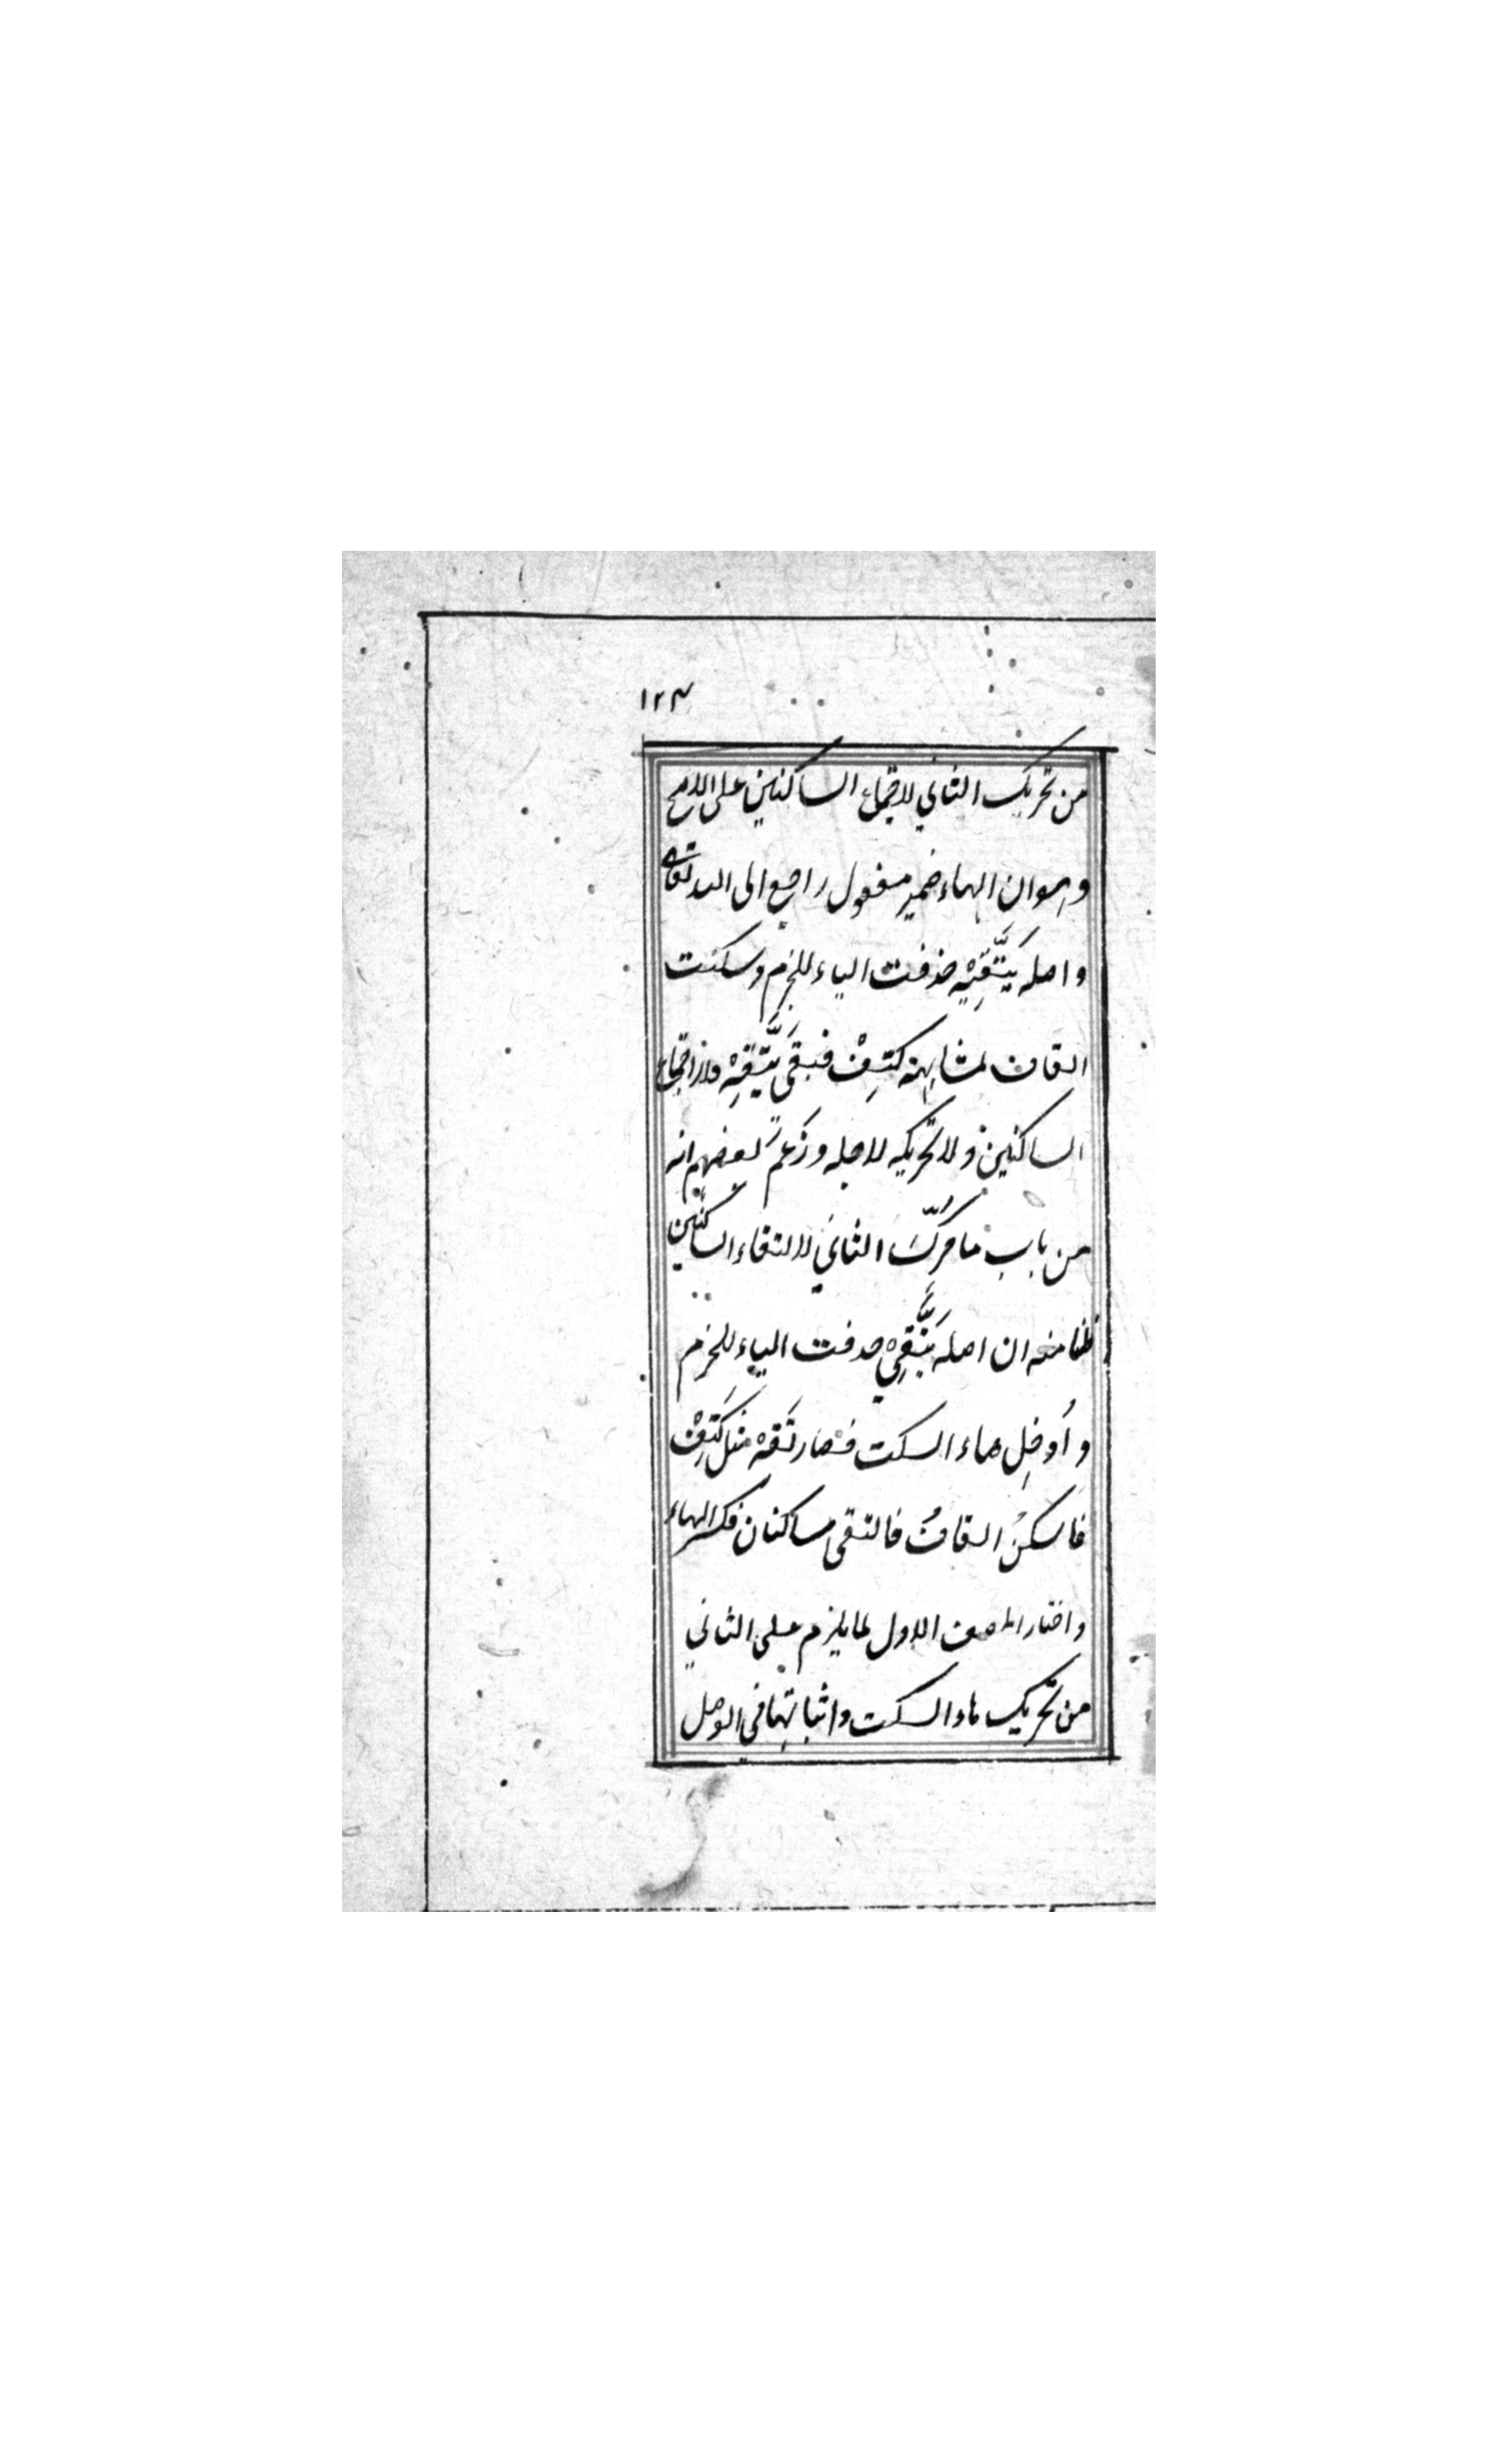 ١٢٣
من تحريك الثاني لاجتماع الساكنين على الاصح
وهو ان الهاء ضمير مفعول راجع الى الله تعالى
واصله يَتَّقِيْهِ حذفت الياء للجزم وسكنت
القاف لمشابهته كتِفْ فبقى يَتَّقْهِ ولا اجتماع
الساكنين ولا تحريكه لاجله وزَعَم بعضهم انه
من باب ما حُرِّكَ الثاني لالتقاء الساكنين
ظنا منه ان اصله يَتَّقِيْ حذفت الياء للجزم
واُدخِل هاء السكت فصار تَقِهْ مثل كَتِفْ
فاسكنُ القافُ فالتقى ساكنان فكسر الهاء
واختار المصنف الاول لما يلزم على الثاني
من تحريك هاء السكت واثباتها في الوصل